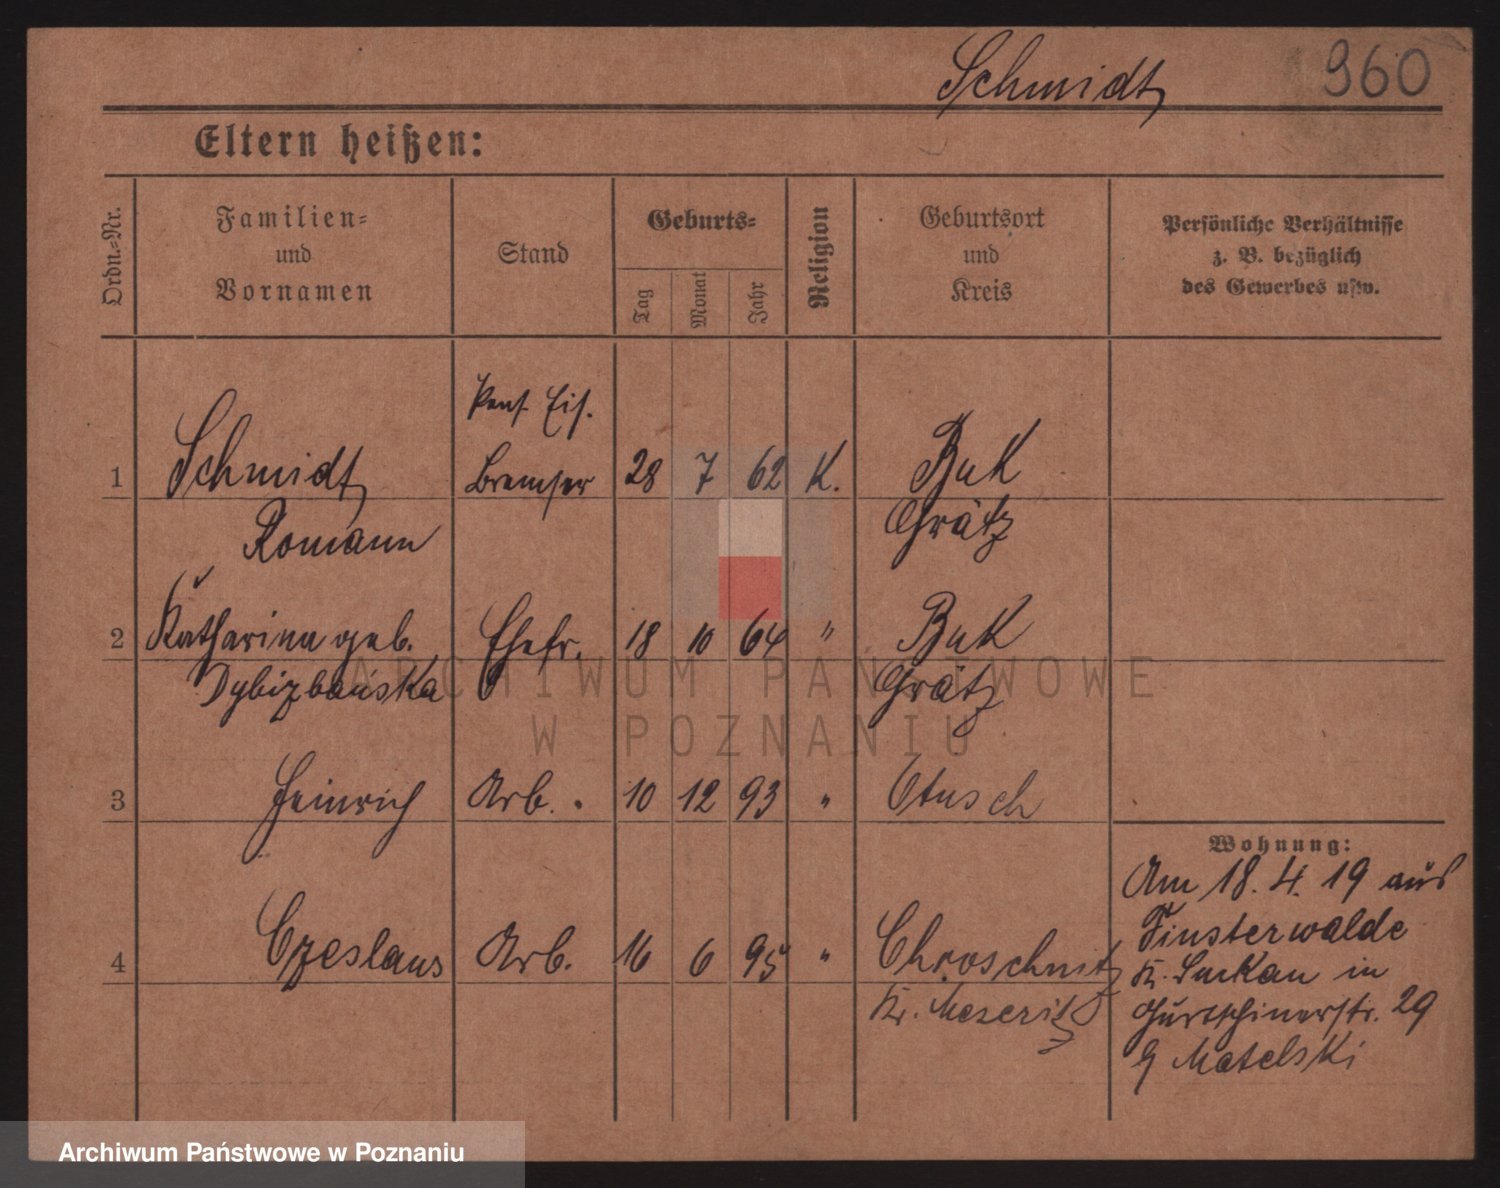 Schmidt
960
Eltern heißen:
Ordn.=Nr.
Familien=
und
Vornamen
Stand
Geburts=
Tag
Monat
Jahr
Religion
Geburtsort
und
Kreis
Persönliche Verhältnisse
z. B. bezüglich
des Gewerbes usw.
Pens. Eis.
1 Schmidt Bremser 28 7 62 K. Buk
Romann Grätz
2 Katharina geb. Ehefr. 18 10 64 " Buk
Grätz
3 Heinrich Arb. 10 12 93 " Otusch
Wohnung:
Am 18. 4. 19 aus
Finsterwalde
4 Czeslaus Arb. 16 6 95 " Chroschnitz
Kr. Luckau in
Kr. Meseritz
Gurtschinerstr. 29
b/ Matelski
ARCHIWUM PAŃSTWOWE
W POZNANIU
Archiwum Państwowe w Poznaniu